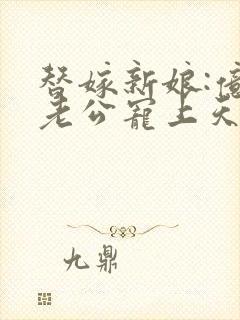 替嫁新娘:億
老公寵上天
九鼎